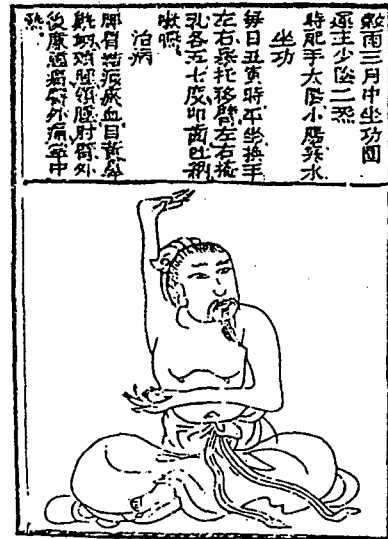 穀雨三月中坐功圖
運主少陰二炁
時配手太陽小腸寒水
坐功
每日丑寅時平坐換手
左右舉托移臂左右掩
乳各五七度叩齒吐納
嗽嚥
治病
脾胃結瘕瘀血目黃鼻
鼽衂頰腫頷腫肘臂外
後廉腫痛臂外痛掌中
熱